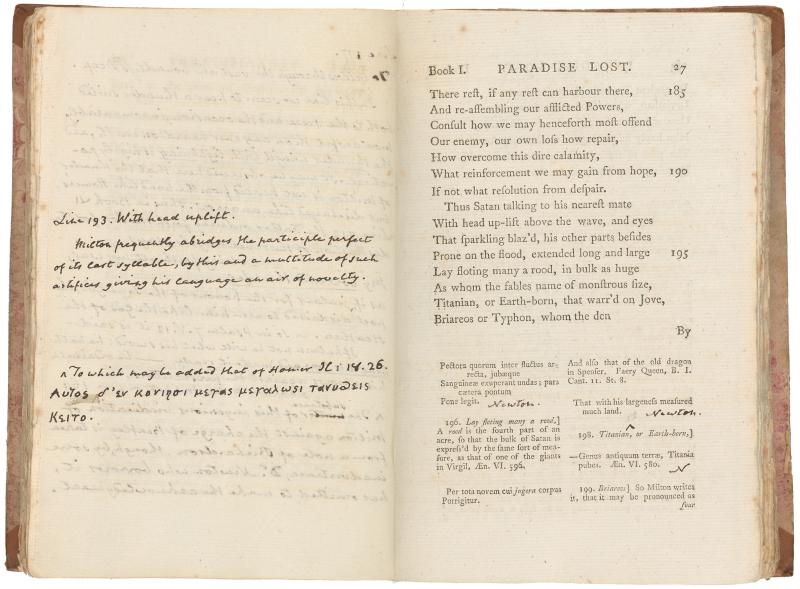 Line 193. With head uplift.
Milton frequently abridges the participle perfect
of its last syllable, by this and a multitude of such
artifices giving his language an air of novelty.
^ To which may be added that of Homer Il: 18. 26.
Αυτος δ' εν κονιησι μεγας μεγαλωσι τανυσθεις
Κειτο.
Book I. PARADISE LOST. 27
There reſt, if any reſt can harbour there, 185
And re-aſſembling our afflicted Powers,
Conſult how we may henceforth moſt offend
Our enemy, our own loſs how repair,
How overcome this dire calamity,
What reinforcement we may gain from hope, 190
If not what reſolution from deſpair.
Thus Satan talking to his neareſt mate
With head up-lift above the wave, and eyes
That ſparkling blaz'd, his other parts beſides
Prone on the flood, extended long and large 195
Lay floting many a rood, in bulk as huge
As whom the fables name of monſtrous ſize,
Titanian, or Earth-born, that warr'd on Jove,
Briareos or Typhon, whom the den
By
Pectora quorum inter fluctus ar-
recta, jubæque
Sanguineæ exuperant undas; pars
cætera pontum
Pone legit. Newton.
196. Lay floting many a rood,]
A rood is the fourth part of an
acre, ſo that the bulk of Satan is
expreſs'd by the ſame ſort of mea-
ſure, as that of one of the giants
in Virgil, Æn. VI. 596.
Per tota novem cui jugera corpus
Porrigitur.
And alſo that of the old dragon
in Spenſer. Faery Queen, B. I.
Cant. 11. St. 8.
That with his largeneſs meaſured
much land. Newton.
^
198. Titanian, or Earth-born,]
—Genus antiquum terræ, Titania
pubes. Æn. VI. 580. N
199. Briareos] So Milton writes
it, that it may be pronounced as
four